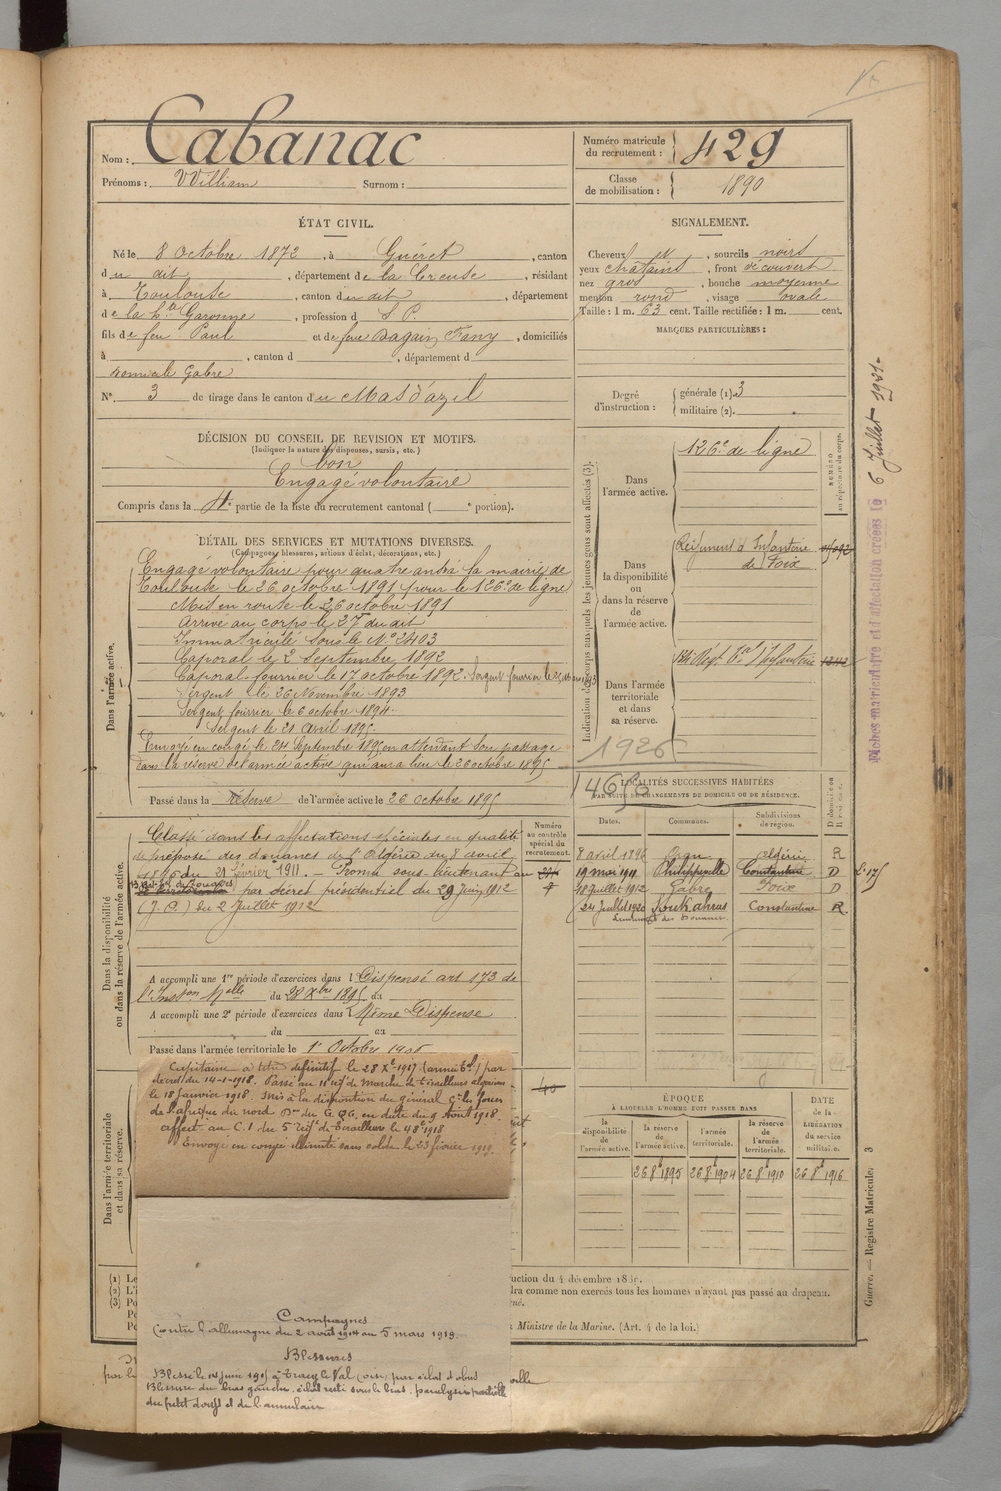 Nom : Cabanac
Prénoms : William Surnom :
Numéro matricule du recrutement : 429
Classe de mobilisation : 1890
ÉTAT CIVIL.
Né le 8 Octobre 1872, à Guéret, canton
du dit, département de la Creuse, résidant
à Toulouse, canton du dit, département
de la Hte Garonne, profession d S. P.
fils de feu Paul et de feue Dagain Fany, domiciliés
à , canton d , département d
domicile Gabre
N° 3 de tirage dans le canton du Mas d'azil
SIGNALEMENT.
Cheveux et, sourcils noirs
yeux chatains, front découvert
nez gros, bouche moyenne
menton rond, visage ovale
Taille : 1 m. 63 cent. Taille rectifiée : 1 m. cent.
MARQUES PARTICULIÈRES :
Degré d'instruction : générale (1). 3
militaire (2).
DÉCISION DU CONSEIL DE REVISION ET MOTIFS.
(Indiquer la nature des dispenses, sursis, etc.)
bon
Engagé volontaire
Compris dans la 4e partie de la liste du recrutement cantonal ( e portion).
DÉTAIL DES SERVICES ET MUTATIONS DIVERSES.
(Campagnes, blessures, actions d'éclat, décorations, etc.)
Dans l'armée active.
Engagé volontaire pour quatre ans à la mairie de
Toulouse le 26 octobre 1891 pour le 126e de ligne
Mis en route le 26 octobre 1891
Arrivé au corps le 27 du dit
Immatriculé sous le No 2403
Caporal le 2 Septembre 1892
Caporal fourrier le 17 octobre 1892. Sergent fourrier le
Sergent le 26 Novembre 1893
Sergent fourrier le 6 octobre 1894.
Sergent le 21 avril 1895.
Envoyé en congé le 24 Septembre 1895 en attendant son passage
dans la réserve de l'armée active qui aura lieu le 26 octobre 1895
Passé dans la réserve de l'armée active le 26 octobre 1895
Indication des corps auxquels les jeunes gens sont affectés (3).
NUMÉRO au répertoire du corps.
Dans l'armée active.
126e de ligne
Dans la disponibilité ou dans la réserve de l'armée active.
Régiment d'Infanterie
de Foix
Dans l'armée territoriale et dans sa réserve.
Regt d'Infanterie
1926
1465
Fiches matriculaire et d'affectation créées le 6 Juillet 1921.
LOCALITÉS SUCCESSIVES HABITÉES
PAR SUITE DE CHANGEMENTS DE DOMICILE OU DE RÉSIDENCE.
Dates. Communes. Subdivisions de région.
8 avril 1896 Oran Algérie R
19 mai 1911 Philippeville Constantine D
18 juillet 1912 Gabre Foix D
24 Juillet 1920 Souk ahras Constantine R
Dans la disponibilité ou dans la réserve de l'armée active.
Numéro au contrôle spécial du recrutement.
Classé dans les affectations spéciales en qualité
de préposé des douanes de l'Algérie du 8 avril
1896 du 21 février 1911. – Promu sous-lieutenant au
par décret présidentiel du 29 Juin 1912
(J. O.) du 2 Juillet 1912
A accompli une 1re période d'exercices dans l Dispensé art 173 de
l'Inston Melle du 28 Xbre 1895 au
A accompli une 2e période d'exercices dans Même Dispense
du au
Passé dans l'armée territoriale le 1er Octobre
Dans l'armée territoriale et dans sa réserve.
Capitaine à titre définitif le 28 Xbre 1917 (armée tle) par
décret du 14-1-1918. Passé au 11e régt de Marche de tirailleurs algériens
le 18 Janvier 1918. Mis à la disposition du général Ct les forces
de l'afrique du nord Don du G. Q.G. en date du 9 Août 1918.
affect. au C. I du 5e régt de tirailleurs le 1918
Envoyé en congé illimité sans solde le 23 février 1919.
ÉPOQUE
À LAQUELLE L'HOMME DOIT PASSER DANS
la disponibilité de l'armée active. la réserve de l'armée active. l'armée territoriale. la réserve de l'armée territoriale.
DATE de la LIBÉRATION du service militaire.
26 8bre 1895 26 8bre 1904 26 8bre 1910 26 8bre 1916
Campagnes
Contre l'allemagne du 2 août 1914 au 5 mars 1919.
Blessures
Blessé le 14 juin à Tracy le Val (oise) par éclat d'obus
Blessure du bras gauche, éclat resté sous le bras. paralysie partielle
du petit doigt et de l'annulaire
uction du 4 décembre
dra comme non exercés tous les hommes n'ayant pas passé au drapeau.
Ministre de la Marine. (Art. 4 de la loi.)
Guerre. — Registre Matricule. 3